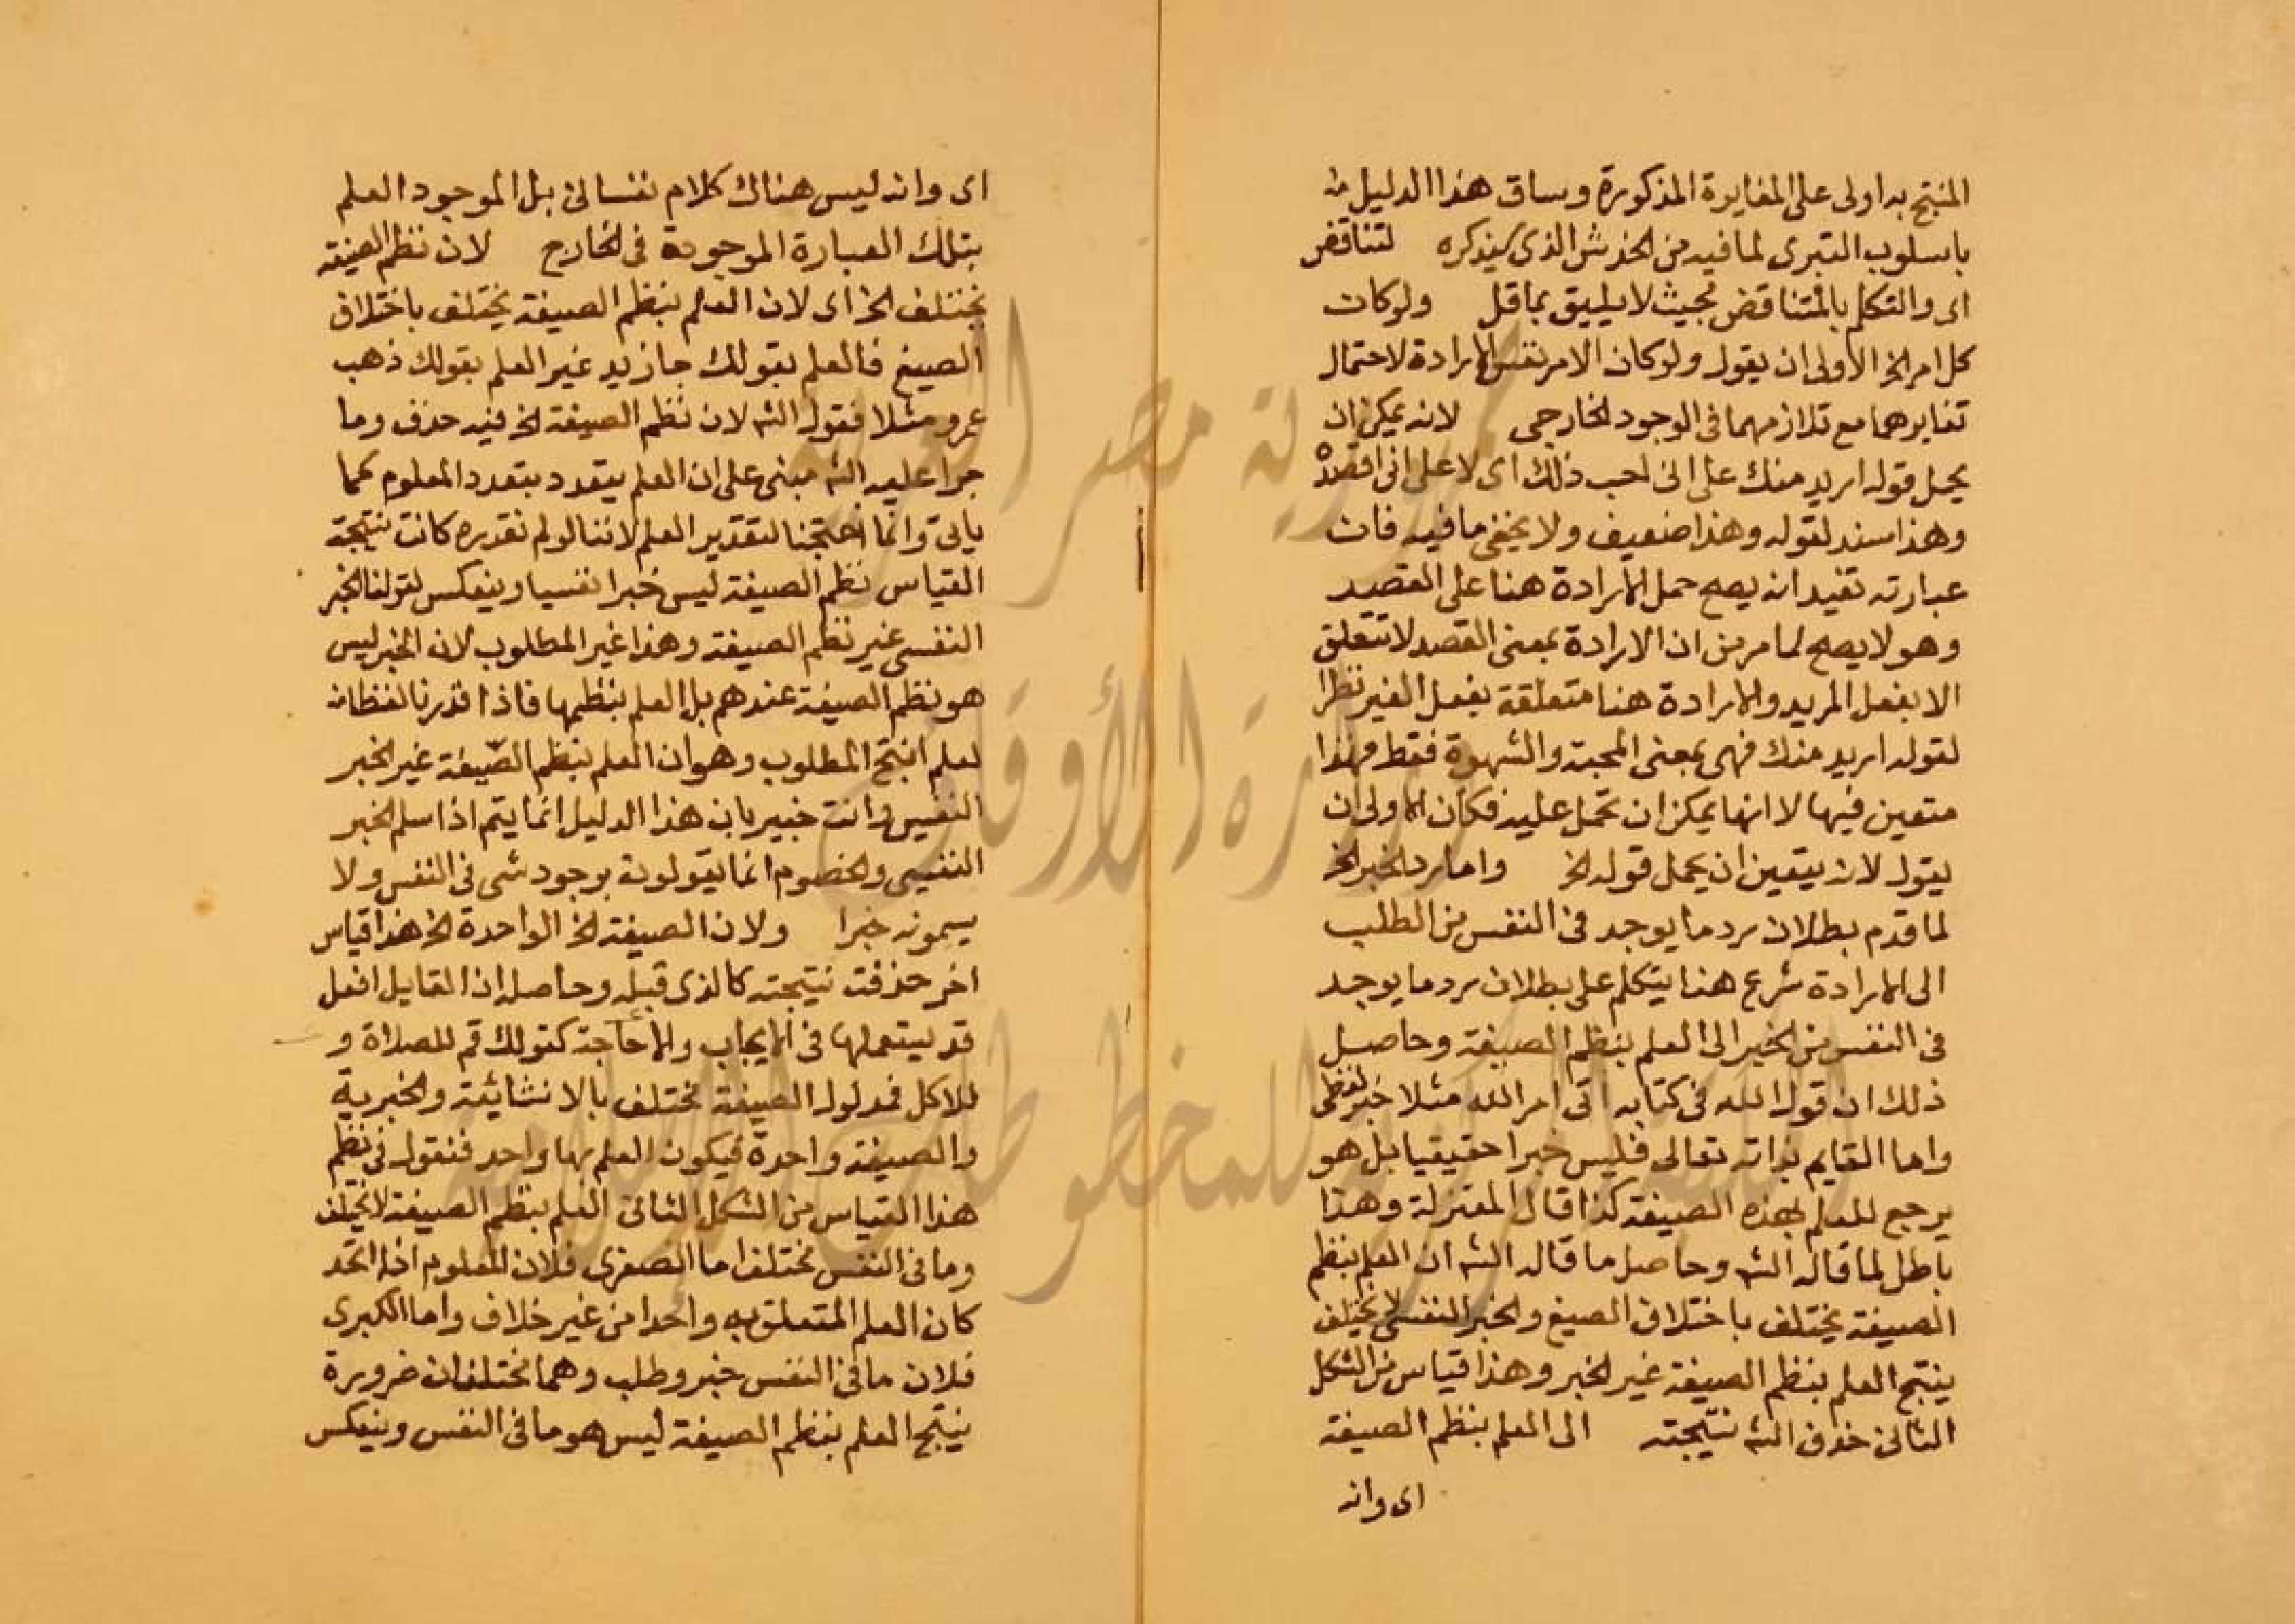 المنتج به اولى على المغايرة المذكورة وساق هذا الدليل منه
باسلوب التبرى لما فيه من الخدش الذى سيذكره لتناقض
اى والتكلم بالمتناقض بحيث لا يليق بعاقل ولو كان
كل امر الخ الأولى ان يقول ولو كان الامر نفس الإرادة لاحتمال
تغايرهما مع تلازمهما فى الوجود الخارجى لانه يمكن ان
يحمل قوله اريد منك على انى احب ذلك اى لا على انى اقصده
وهذا سند لقوله وهذا ضعيف ولا يخفى ما فيه فان
عبارته تفيد انه يصح حمل الإرادة هنا على القصد
وهو لا يصح لما مر من ان الارادة بمعنى القصد لا تتعلق
الا بفعل المريد والإرادة هنا متعلقة بفعل الغير نظرا
لقوله اريد منك فهى بمعنى المحبة والشهوة فقط وهذا
متعين فيها لا انها يمكن ان تحمل عليه فكان الاولى ان
يقول لانه يتعين ان يحمل قوله الخ واما رد الخبر الخ
لما قدم بطلان رد ما يوجد فى النفس من الطلب
الى الإرادة شرع هنا يتكلم على بطلان رد ما يوجد
فى النفس من الخبر الى العلم بنظم الصيغة وحاصل
ذلك ان قول الله فى كتابه اتى امر الله مثلا خبر لفظى
واما القايم بذاته تعالى فليس خبرا حقيقيا بل هو
يرجع للعلم بهذه الصيغة كذا قال المعتزلة وهذا
باطل لما قاله الشه وحاصل ما قاله الشه ان العلم بنظم
الصيغة يختلف باختلاف الصيغ والخبر النفسى لا يختلف
ينتج العلم بنظم الصيغة غير الخبر وهذا قياس من الشكل
الثانى حذف الشه نتيجته الى العلم بنظم الصيغة
اى وانه
اى وانه ليس هناك كلام نفسانى بل الموجود العلم
بتلك العبارة الموجودة فى الخارج لان نظم الصيغة
يختلف الخ اى لان العلم بنظم الصيغة يختلف باختلاف
الصيغ فالعلم بقولك جا زيد غير العلم بقولك ذهب
عمرو مثلا فقول الشه لان نظم الصيغة الخ فيه حذف وما
جرا عليه الشه مبنى على ان العلم يتعدد بتعدد المعلوم كما
ياتى وانما احتجنا لتقدير العلم لاننا لو لم نقدره كانت نتيجة
القياس نظم الصيغة ليس خبرا نفسيا وينعكس لقولنا الخبر
النفسى غير نظم الصيغة وهذا غير المطلوب لان الخبر ليس
هو نظم الصيغة عندهم بل العلم بنظمها فاذا قدرنا لفظة
لعلم انتج المطلوب وهو ان العلم بنظم الصيغة غير الخبر
النفسى وانت خبير بان هذا الدليل انما يتم اذا سلم الخبر
النفسى والخصوم انما يقولون بوجود شى فى النفس ولا
يسمونه خبرا ولان الصيغة الخ الواحدة الخ هذا قياس
اخر حذفت نتيجته كالذى قبله وحاصله ان القايل افعل
قد يستعملها فى الإيجاب والإحاجة كقولك قم للصلاة و
للاكل فمدلول الصيغة مختلف بالانشائية والخبرية
والصيغة واحدة فيكون العلم بها واحد فنقول فى نظم
هذا القياس من الشكل الثانى العلم بنظم الصيغة لا يختلف
وما فى النفس مختلف اما الصغرى فلان المعلوم اذا اتحد
كان العلم المتعلق به واحدا من غير خلاف واما الكبرى
فلان ما فى النفس خبر وطلب وهما مختلفان ضرورة
ينتج العلم بنظم الصيغة ليس هو ما فى النفس وينعكس